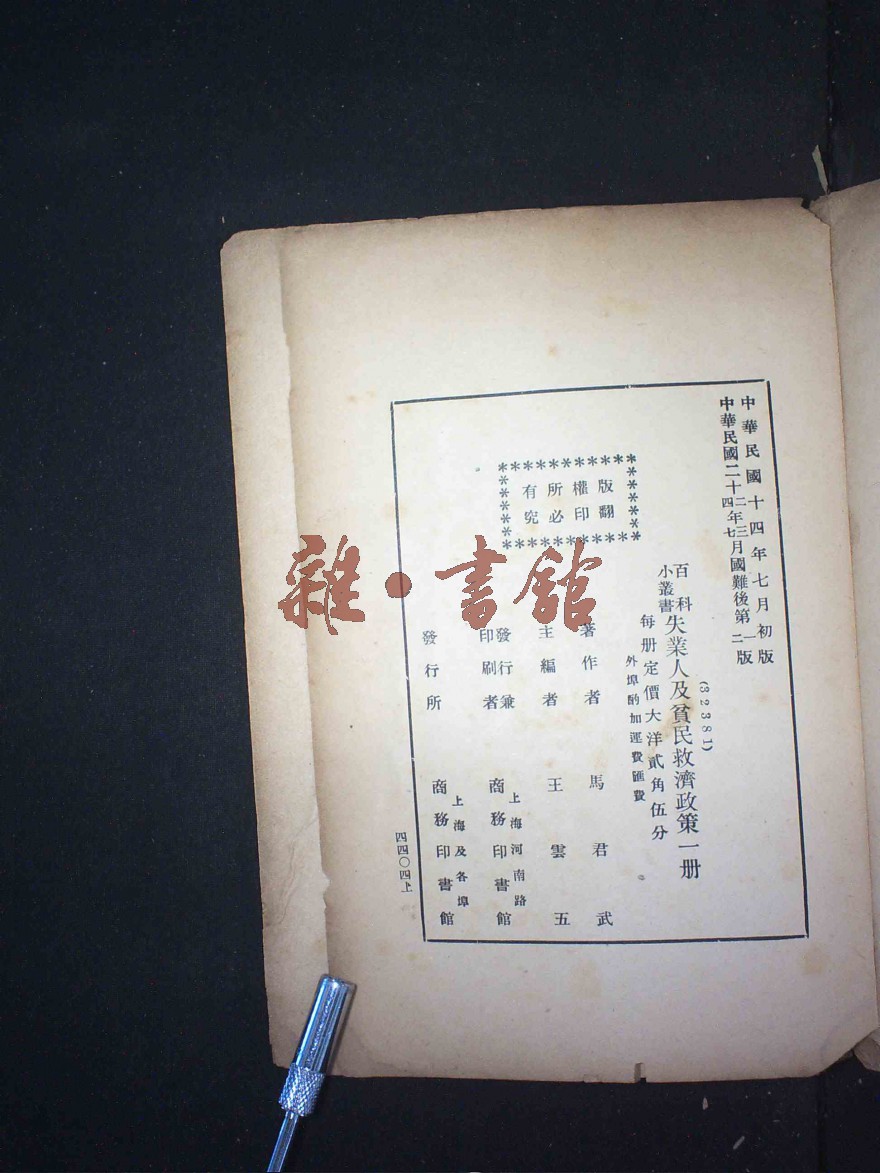 中華民國十四年七月初版
中華民國二十二四年三七月國難後第一二版
(32381)
百科小叢書 失業人及貧民救濟政策一册
每册定價大洋貳角伍分
外埠酌加運費匯費
版權所有
翻印必究
著作者 馬君武
主編者 王雲五
發行兼印刷者 上海河南路 商務印書館
發行所 上海及各埠 商務印書館
四四〇四上
雜·書館